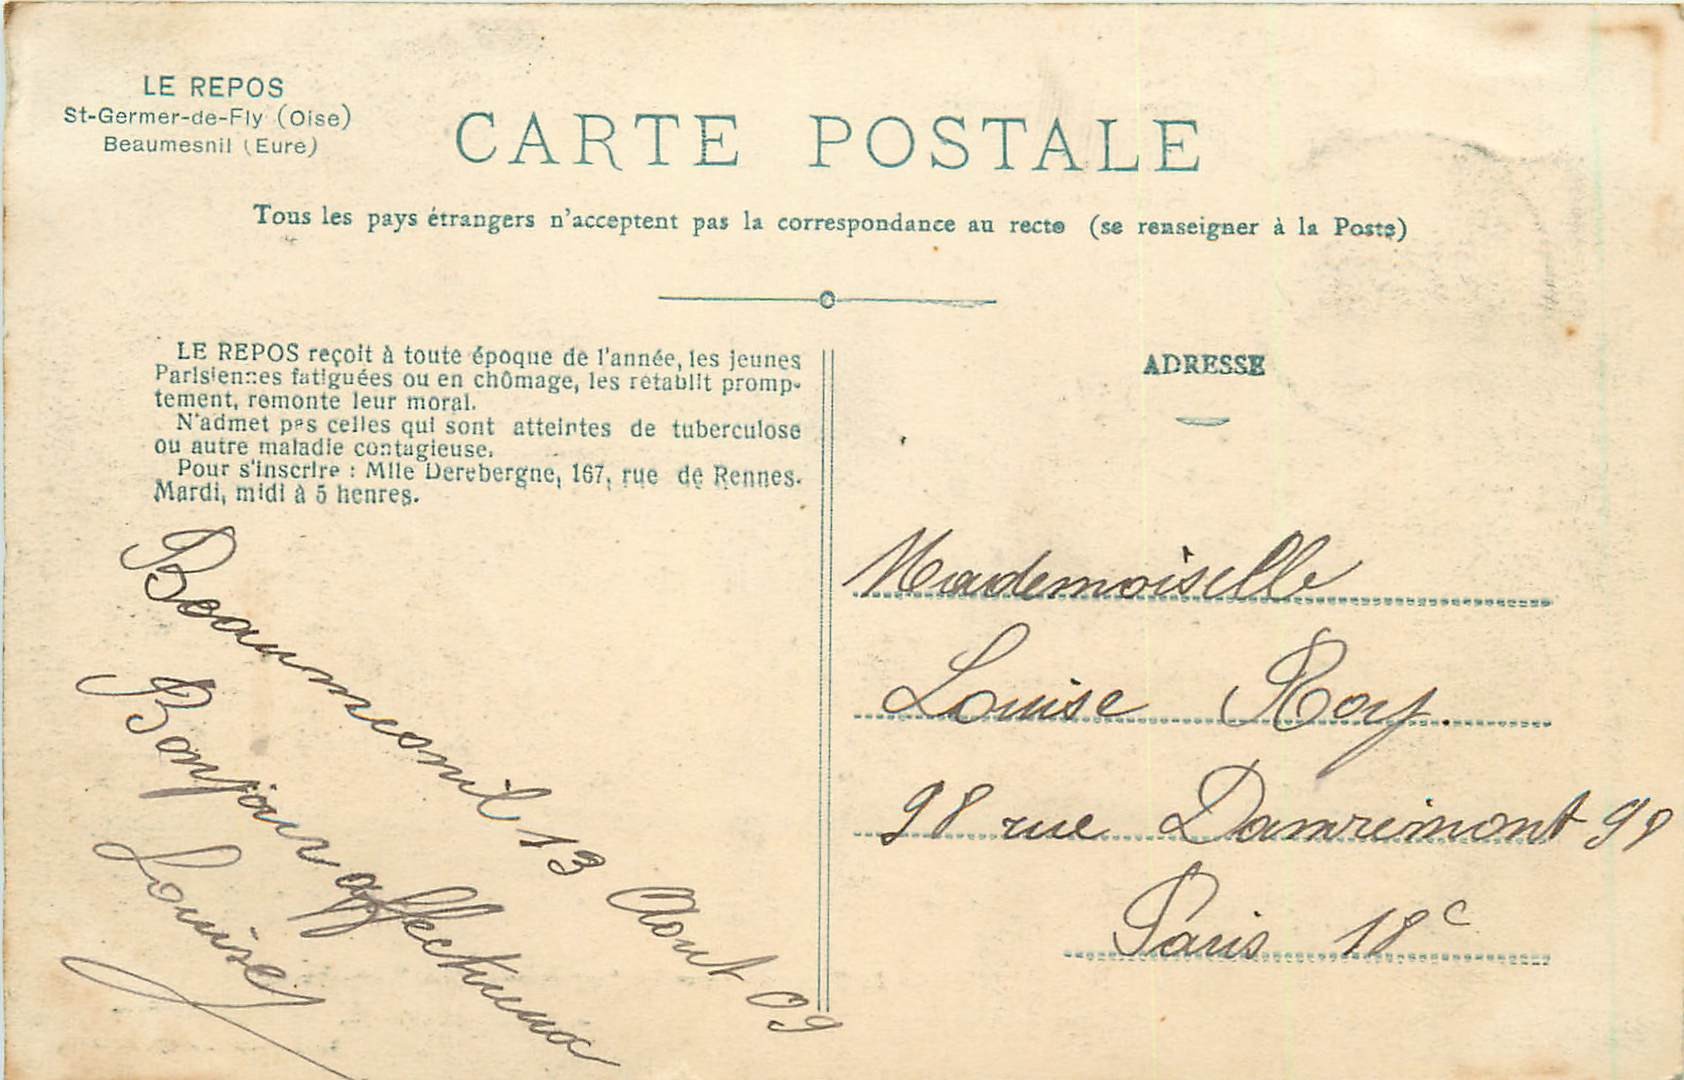 LE REPOS
St-Germer-de-Fly (Oise)
Beaumesnil (Eure)
CARTE POSTALE
Tous les pays étrangers n'acceptent pas la correspondance au recto (se renseigner à la Poste)
LE REPOS reçoit à toute époque de l'année, les jeunes
Parisiennes fatiguées ou en chômage, les rétablit promp-
tement, remonte leur moral.
N'admet pas celles qui sont atteintes de tuberculose
ou autre maladie contagieuse.
Pour s'inscrire : Mlle Derebergne, 167, rue de Rennes.
Mardi, midi à 5 heures.
Beaumesnil 13 Aout 09
Bonjour affectueux
Louise
ADRESSE
Mademoiselle
Louise Roy.
98 rue Damremont 98
Paris 18e